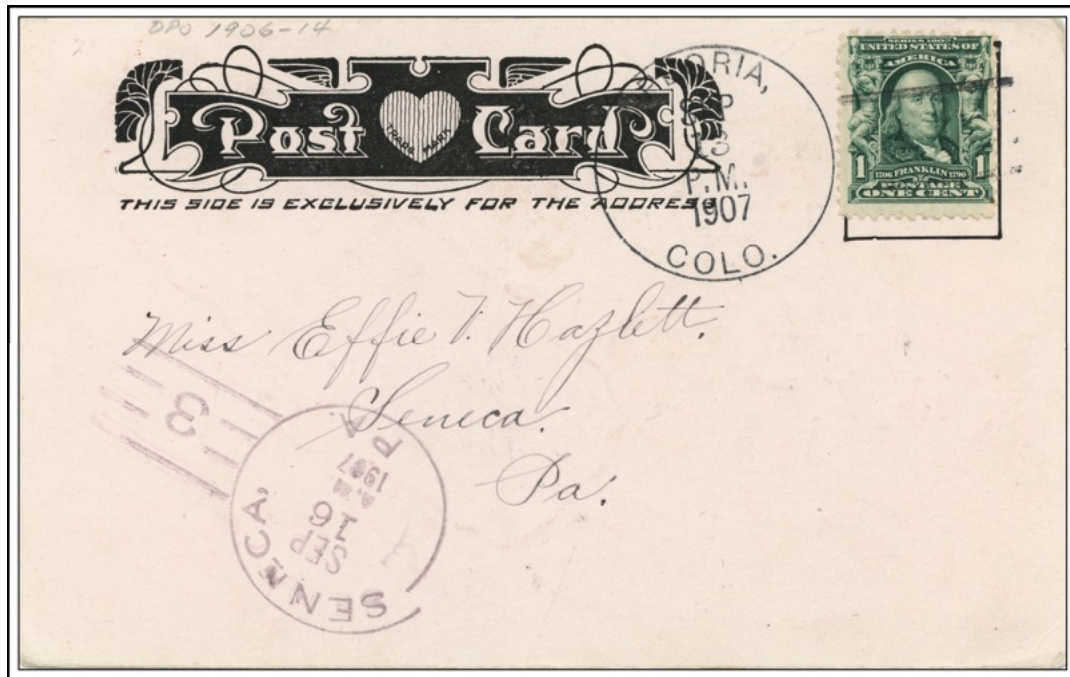 DPO 1906-14
Post Card
TRADE MARK
THIS SIDE IS EXCLUSIVELY FOR THE ADDRESS
SEP
13
P.M.
1907
COLO.
SERIES 1902
UNITED STATES OF
AMERICA
1 1706 FRANKLIN 1790 1
POSTAGE
ONE CENT
Miss Effie V. Hazlett.
Seneca.
Pa.
3
SENECA
PA
SEP
16
A.M
1907